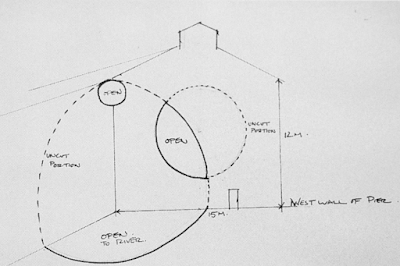 OPEN
UNCUT
PORTION
OPEN
UNCUT
PORTION
12M.
WEST WALL OF PIER
15M.
OPEN
TO RIVER.